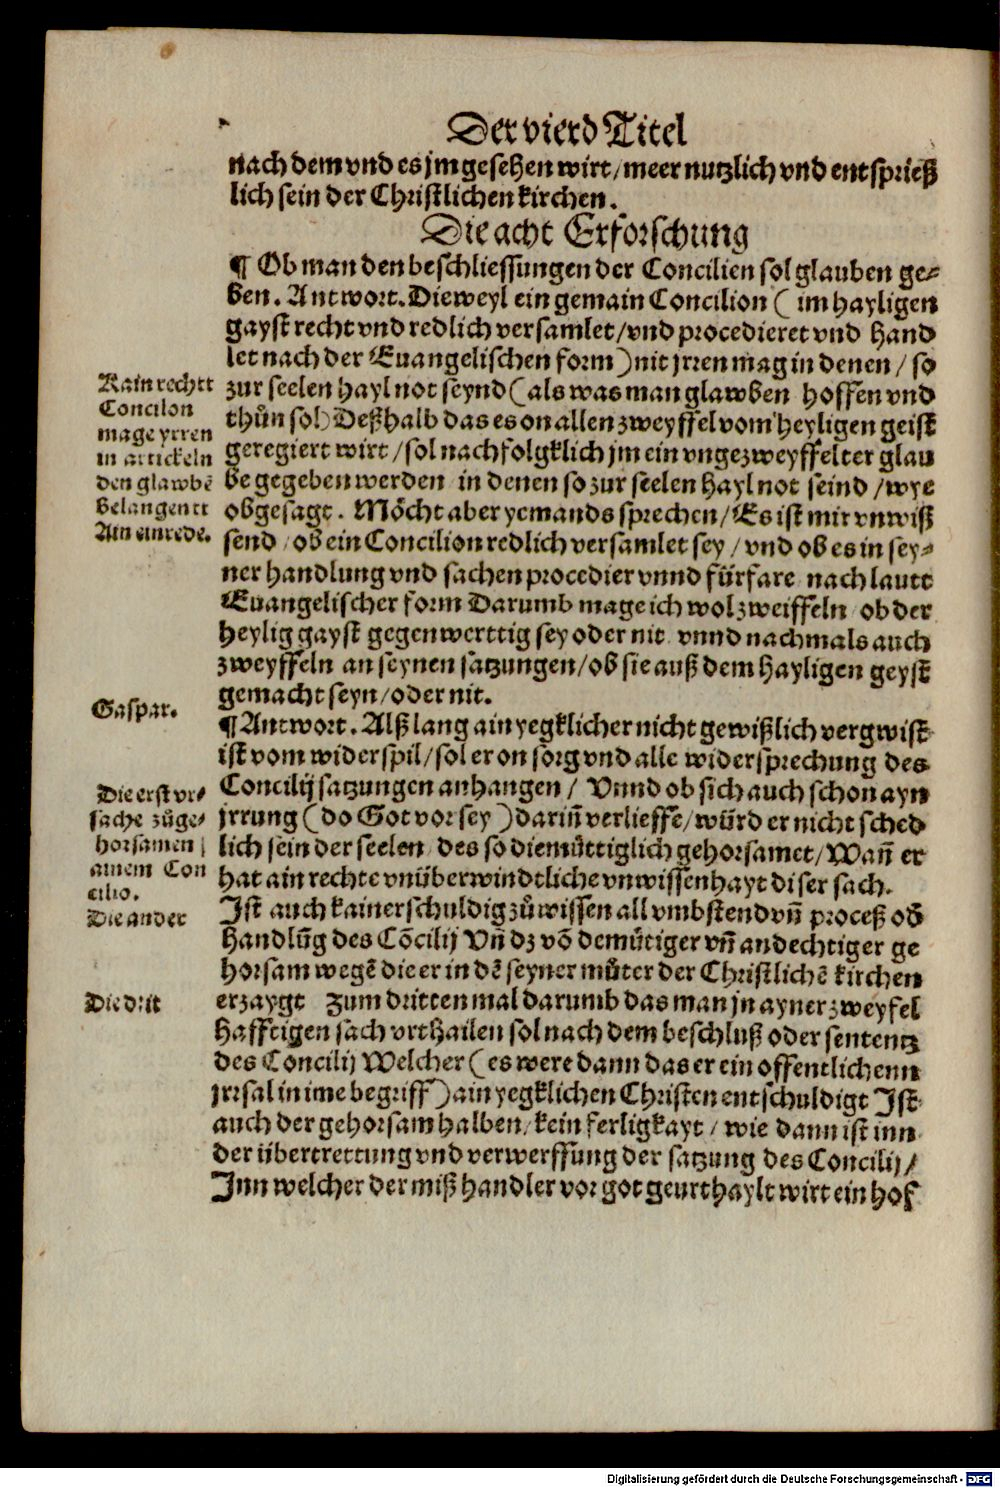 Der vierd Titel
nach dem vnd es jm gesehen wirt / meer nutzlich vnd entsprieß
lich sein der Christlichen kirchen.
Die acht Erforschung
¶ Ob man den beschliessungen der Concilien sol glauben ge⸗
ben. Antwort. Dieweyl ein gemain Concilion ( im hayligen
gayst recht vnd redlich versamlet / vnd procedieret vnd hand
let nach der Euangelischen form ) nit jrren mag in denen / so
zur seelen hayl not seynd ( als was man glawben hoffen vnd
thůn sol) Deßhalb das es on allen zweyffel vom heyligen geist
geregiert wirt / sol nachfolgklich jm ein vngezweyffelter glau
be gegeben werden in denen so zur seelen hayl not seind / wye
obgesagt. Mőcht aber yemands sprechen / Es ist mir vnwiß
send / ob ein Concilion redlich versamlet sey / vnd ob es in sey⸗
ner handlung vnd sachen procedier vnnd fürfare nach lautt
Euangelischer form Darumb mage ich wol zweiffeln / ob der
heylig gayst gegenwerttig sey oder nit vnnd nachmals auch
zweyffeln an seynen satzungen / ob sie auß dem hayligen geyst
gemacht seyn / oder nit.
¶ Antwort. Alß lang ain yegklicher nicht gewißlich vergwist
ist vom widerspil / sol er on sorg vnd alle widersprechung des
Concilij satzungen anhangen / Vnnd ob sich auch schon ayn
jrrung ( do Got vor sey ) dariñ verlieffe / würd er nicht sched
lich sein der seelen des so diemůttiglich gehorsamet / Wañ er
hat ain rechte vnüberwindtliche vnwissenhayt diser sach.
Jst auch kainer schuldig zů wissen all vmbstend vñ proceß od̃
handlũg des Cõcilij Vñ dz võ demůtiger vñ andechtiger ge
horsam wegẽ die er in dẽ seyner můter der Christlichẽ kirchen
erzaygt Zum dritten mal darumb das man jn ayner zweyfel
hafftigen sach vrthailen sol nach dem beschluß oder sententz
des Concilij Welcher ( es were dann das er ein offentlichenn
jrrsal in ime begriff ) ain yegklichen Christen entschuldigt Jst
auch der gehorsam halben / kein ferligkayt / wie dann ist inn
der übertrettung vnd verwerffung der satzung des Concilij /
Jnn welcher der mißhandler vor got geurthaylt wirt ein hof
Kain rechtt
Concilon
mage yrren
in artickeln
den glawbẽ
belangentt
Ain einrede.
Gaspar.
Die erst vr⸗
sache zůge⸗
horsamen
ainem Con
cilio.
Die ander
Die drit
Digitalisierung gefördert durch die Deutsche Forschungsgemeinschaft - DFG